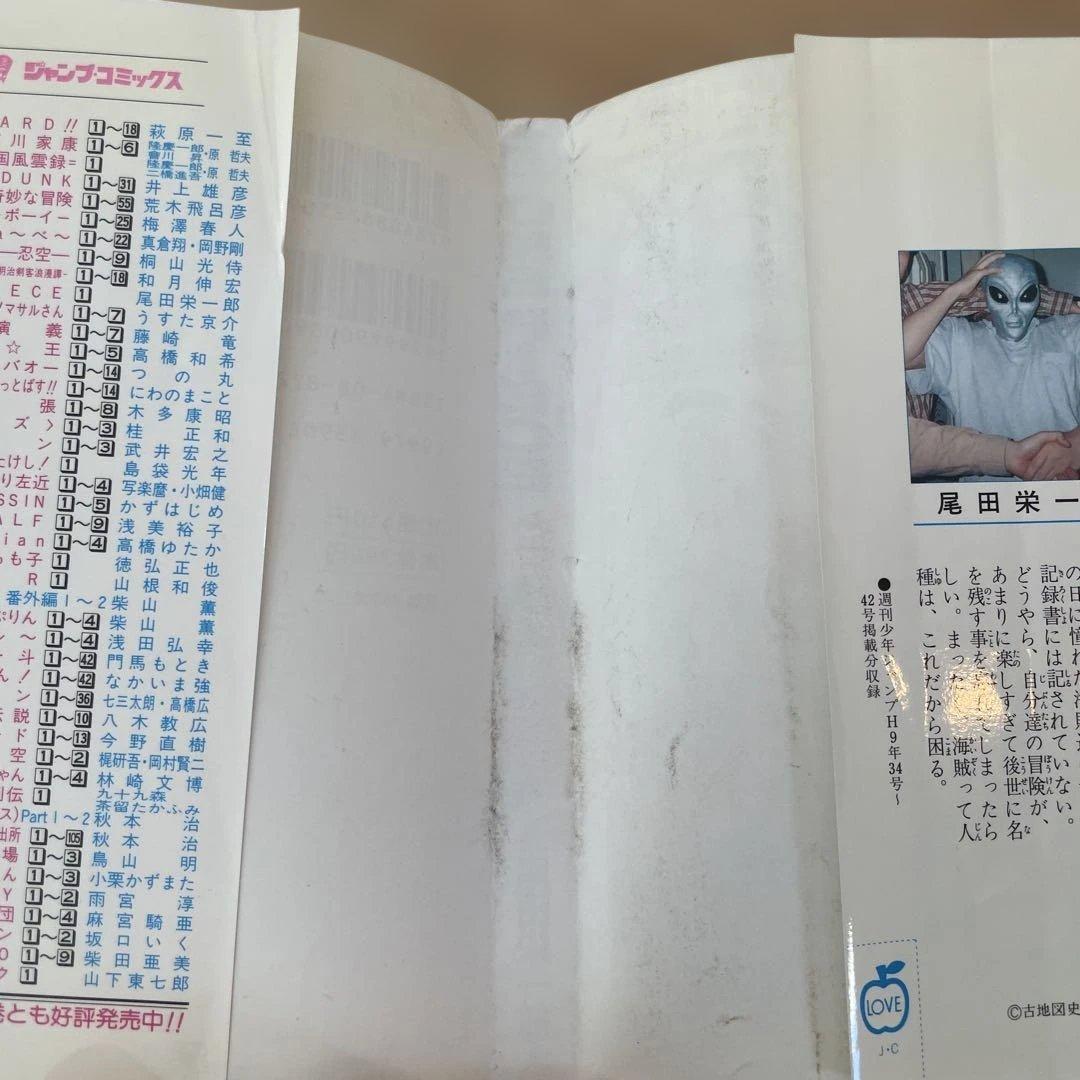 ジャンプ・コミックス
ARD!! 1〜18 萩原一至
川家康 1〜6 隆慶一郎・原哲夫 會川昇
国風雲録= 1 隆慶一郎・原哲夫 二橋進吾
DUNK 1〜31 井上雄彦
奇妙な冒険 1〜55 荒木飛呂彦
ボーイ− 1〜25 梅澤春人
〜べ〜 1〜22 真倉翔・岡野剛
―忍空― 1〜9 桐山光侍
明治剣客浪漫譚- 1〜18 和月伸宏
ECE 1 尾田栄一郎
マサルさん 1〜7 うすた京介
演義 1〜7 藤崎竜
☆王 1〜5 高橋和希
バオー 1〜14 つの丸
っとばす!! 1〜14 にわのまこと
張 1〜8 木多康昭
ズ〉 1〜3 桂正和
ン 1〜3 武井宏之
たけし! 1 島袋光年
り左近 1〜4 写楽麿・小畑健
SSIN 1〜5 かずはじめ
ALF 1〜9 浅美裕子
ian 1〜4 高橋ゆたか
も子 1 徳弘正也
R 1 山根和俊
番外編1〜2 柴山薫
ぷりん 1〜4 柴山薫
ン〜 1〜4 浅田弘幸
斗 1〜42 門馬もとき
ん! 1〜42 なかいま強
ン 1〜36 七三太朗・高橋広
伝説 1〜10 八木教広
ド 1〜13 今野直樹
空 1〜2 梶研吾・岡村賢二
ゃん 1〜4 林崎文博
列伝 1 九十九森 茶留たかふみ
ス)Part1〜2 秋本治
出所 1〜105 秋本治
場 1〜3 鳥山明
ん 1〜3 小栗かずまた
Y 1〜2 雨宮淳
団 1〜4 麻宮騎亜
ン 1〜2 坂口いく
O 1〜9 柴田亜美
ク 1 山下東七郎
巻とも好評発売中!!
尾田栄一
記録書には記されていない。
どうやら、自分達の冒険が、
あまりに楽しすぎて後世に名
を残す事を忘れてしまったら
しい。まったく海賊って人
種は、これだから困る。
●週刊少年ジャンプH9年34号〜
42号掲載分収録
LOVE
J・C
©古地図史